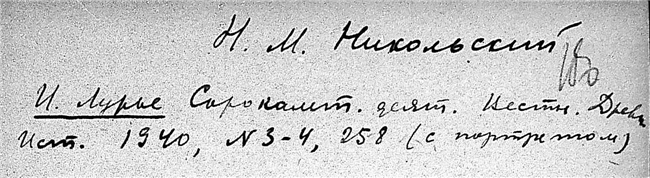 Н. М. Никольский
И. Лурье Сорокалет. деят. Вестн. Древн.
Ист. 1940, N 3-4, 258 (с портретом)